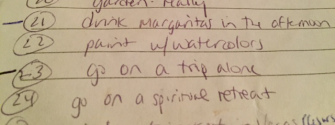 garden - really
21 drink margaritas in the afternoon
22 paint w/watercolors
23 go on a trip alone
24 go on a spiritual retreat